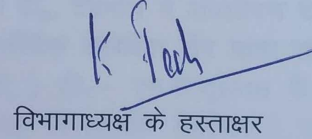 विभागाध्यक्ष के हस्ताक्षर